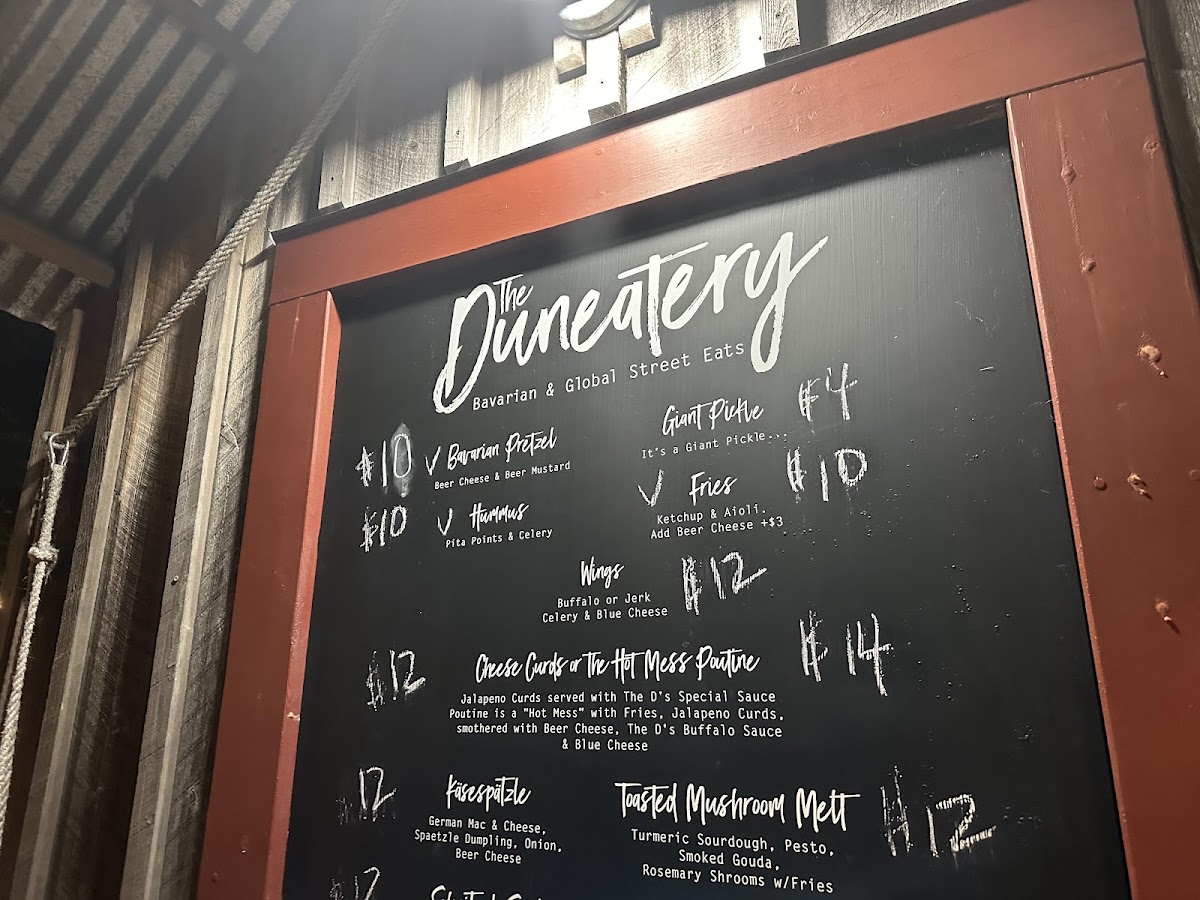 The
Duneatery
Bavarian & Global Street Eats
$10 ✓ Bavarian Pretzel
Beer Cheese & Beer Mustard
Giant Pickle $4
It's a Giant Pickle...
$10 ✓ Hummus
Pita Points & Celery
✓ Fries $10
Ketchup & Aioli.
Add Beer Cheese +$3
Wings $12
Buffalo or Jerk
Celery & Blue Cheese
$12 Cheese Curds or The Hot Mess Poutine $14
Jalapeno Curds served with The D's Special Sauce
Poutine is a "Hot Mess" with Fries, Jalapeno Curds,
smothered with Beer Cheese, The D's Buffalo Sauce
& Blue Cheese
$12 Käsespätzle
German Mac & Cheese,
Spaetzle Dumpling, Onion,
Beer Cheese
Toasted Mushroom Melt $12
Turmeric Sourdough, Pesto,
Smoked Gouda,
Rosemary Shrooms w/Fries
12